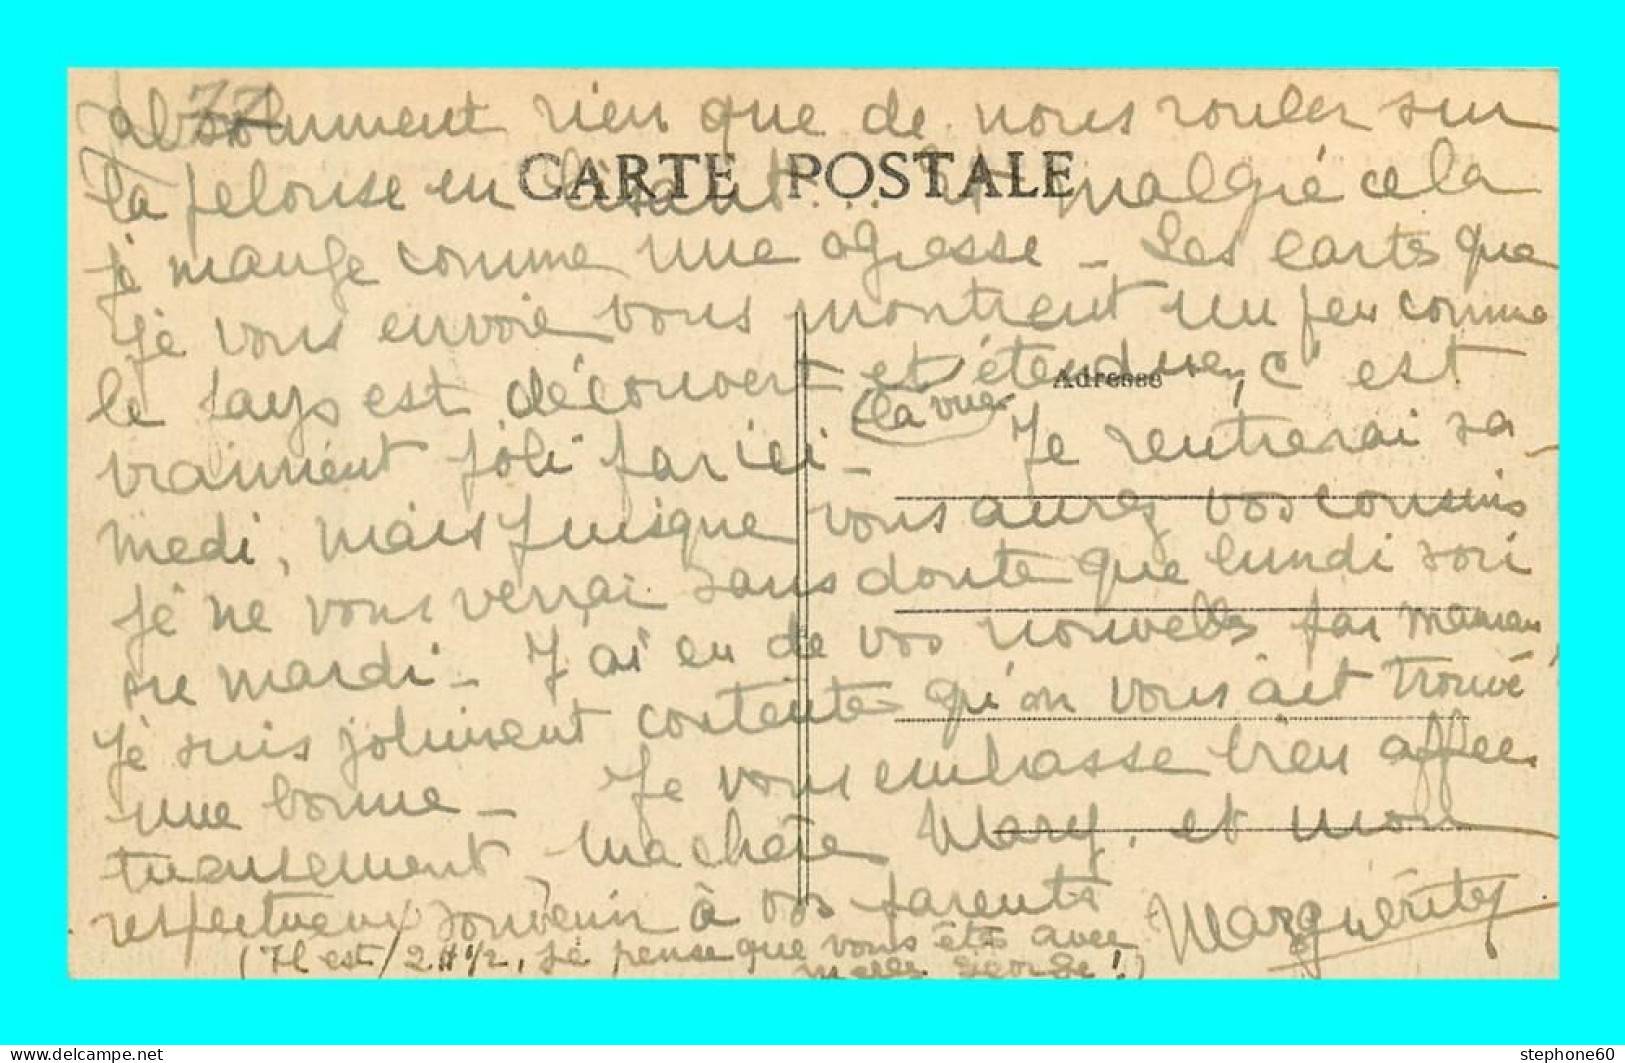 77
absolument rien que de nous rouler sur
CARTE POSTALE
la pelouse en lisant... Et malgré cela
je mange comme une ogresse - Les cartes que
je vous envoie vous montrent un peu comme
Adresse
le pays est découvert et étendue, c'est
la vue
vraiment joli par ici - Je rentrerai sa-
medi, mais puisque vous aurez vos cousins
je ne vous verrai sans doute que lundi soir
ou mardi - J'ai eu de vos nouvelles par maman,
Je suis joliment contente qu'on vous ait trouvé
une bonne - Je vous embrasse bien affec
tueusement, ma chère Mary, et mon
respectueux souvenir à vos parents
Marguerite
(Il est 2 H 1/2, je pense que vous êtes avec
George !)
stephone60
www.delcampe.net